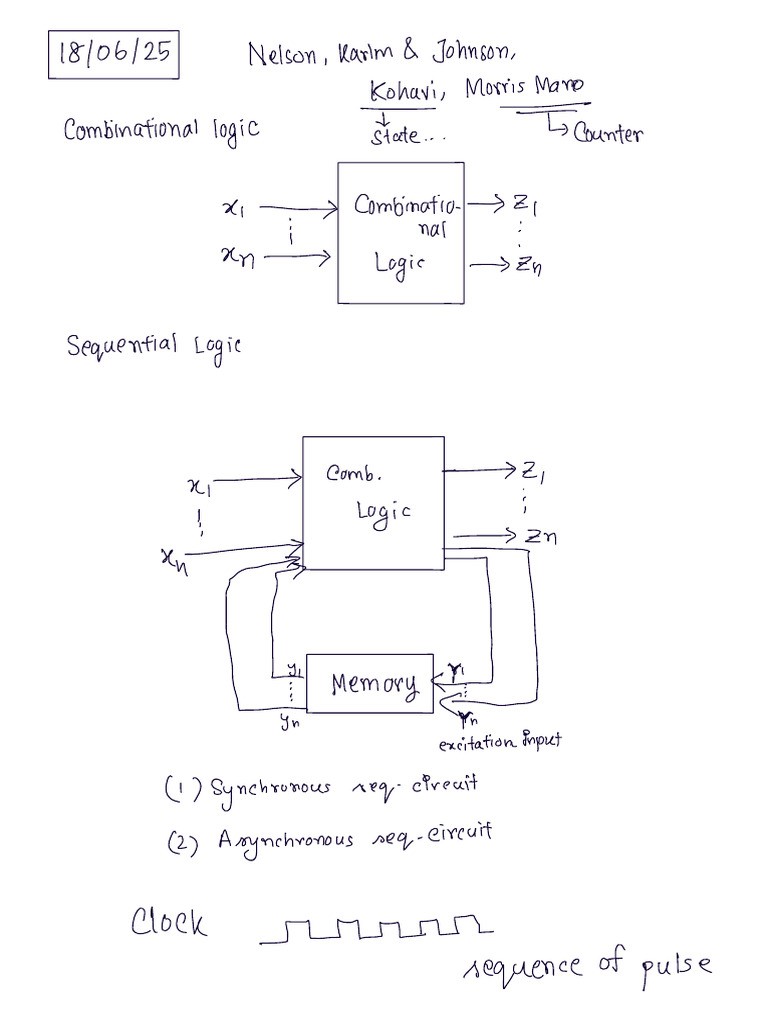 18/06/25
Nelson, Karim & Johnson,
Kohavi, Morris Mano
state...
Counter
Combinational logic
x1
xn
Combinatio-
nal
Logic
Z1
Zn
Sequential Logic
x1
xn
Comb.
Logic
Z1
Zn
y1
yn
Memory
Y1
Yn
excitation input
(1) Synchronous seq. circuit
(2) Asynchronous seq-circuit
Clock
sequence of pulse